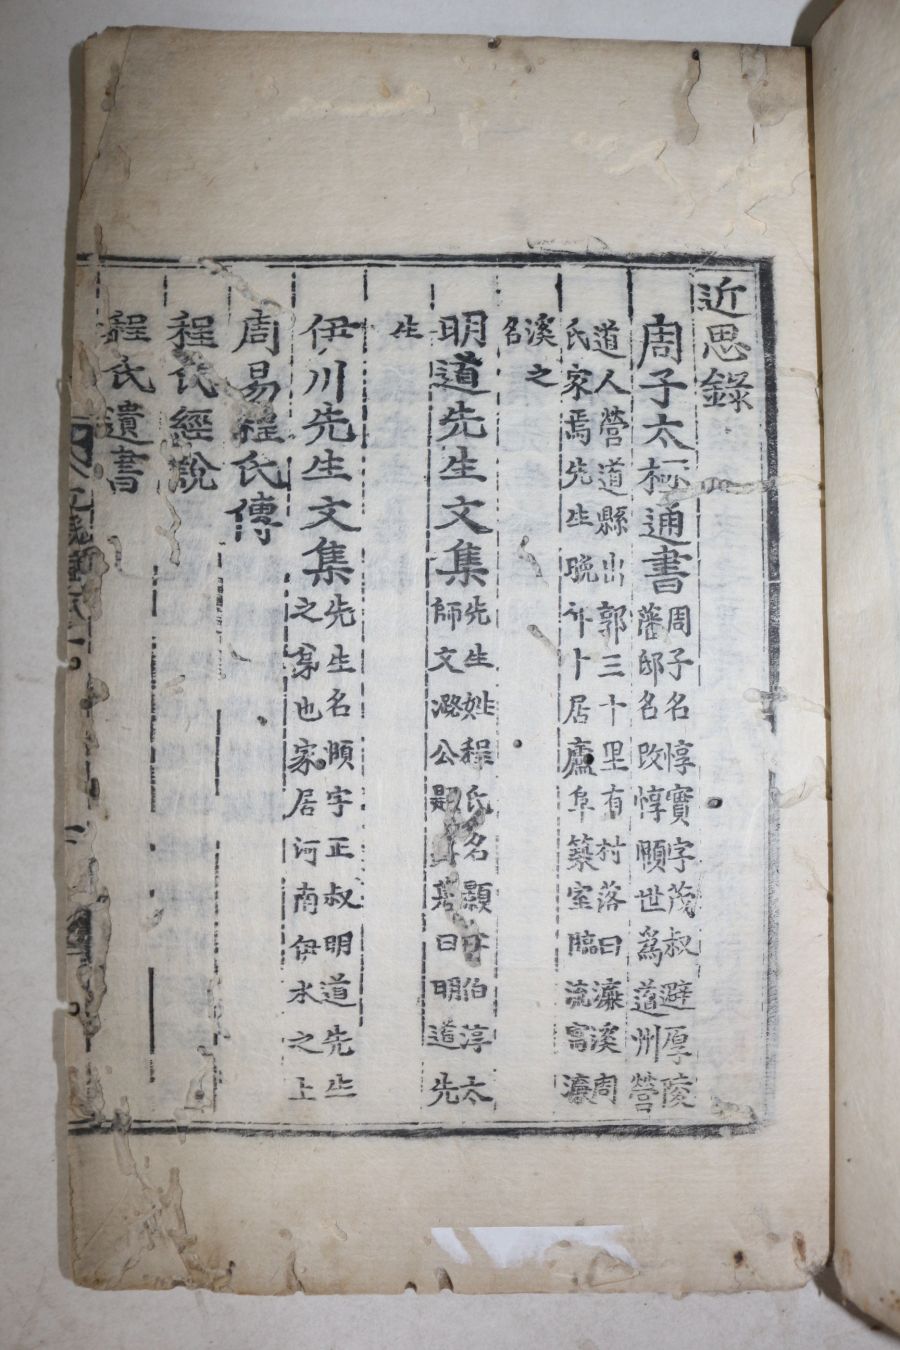 近思錄
周子太極通書 周子名惇實字茂叔避厚陵
藩邸名改惇頤世爲道州營
道人營道縣出郭三十里有村落曰濂溪周
氏家焉先生晚卜居廬阜築室臨流寓濂
溪之
名
明道先生文集 先生姓程氏名顥字伯淳太
師文潞公題其墓曰明道先
生
伊川先生文集 先生名頤字正叔明道先生
之弟也家居河南伊水之上
周易程氏傳
程氏經說
程氏遺書